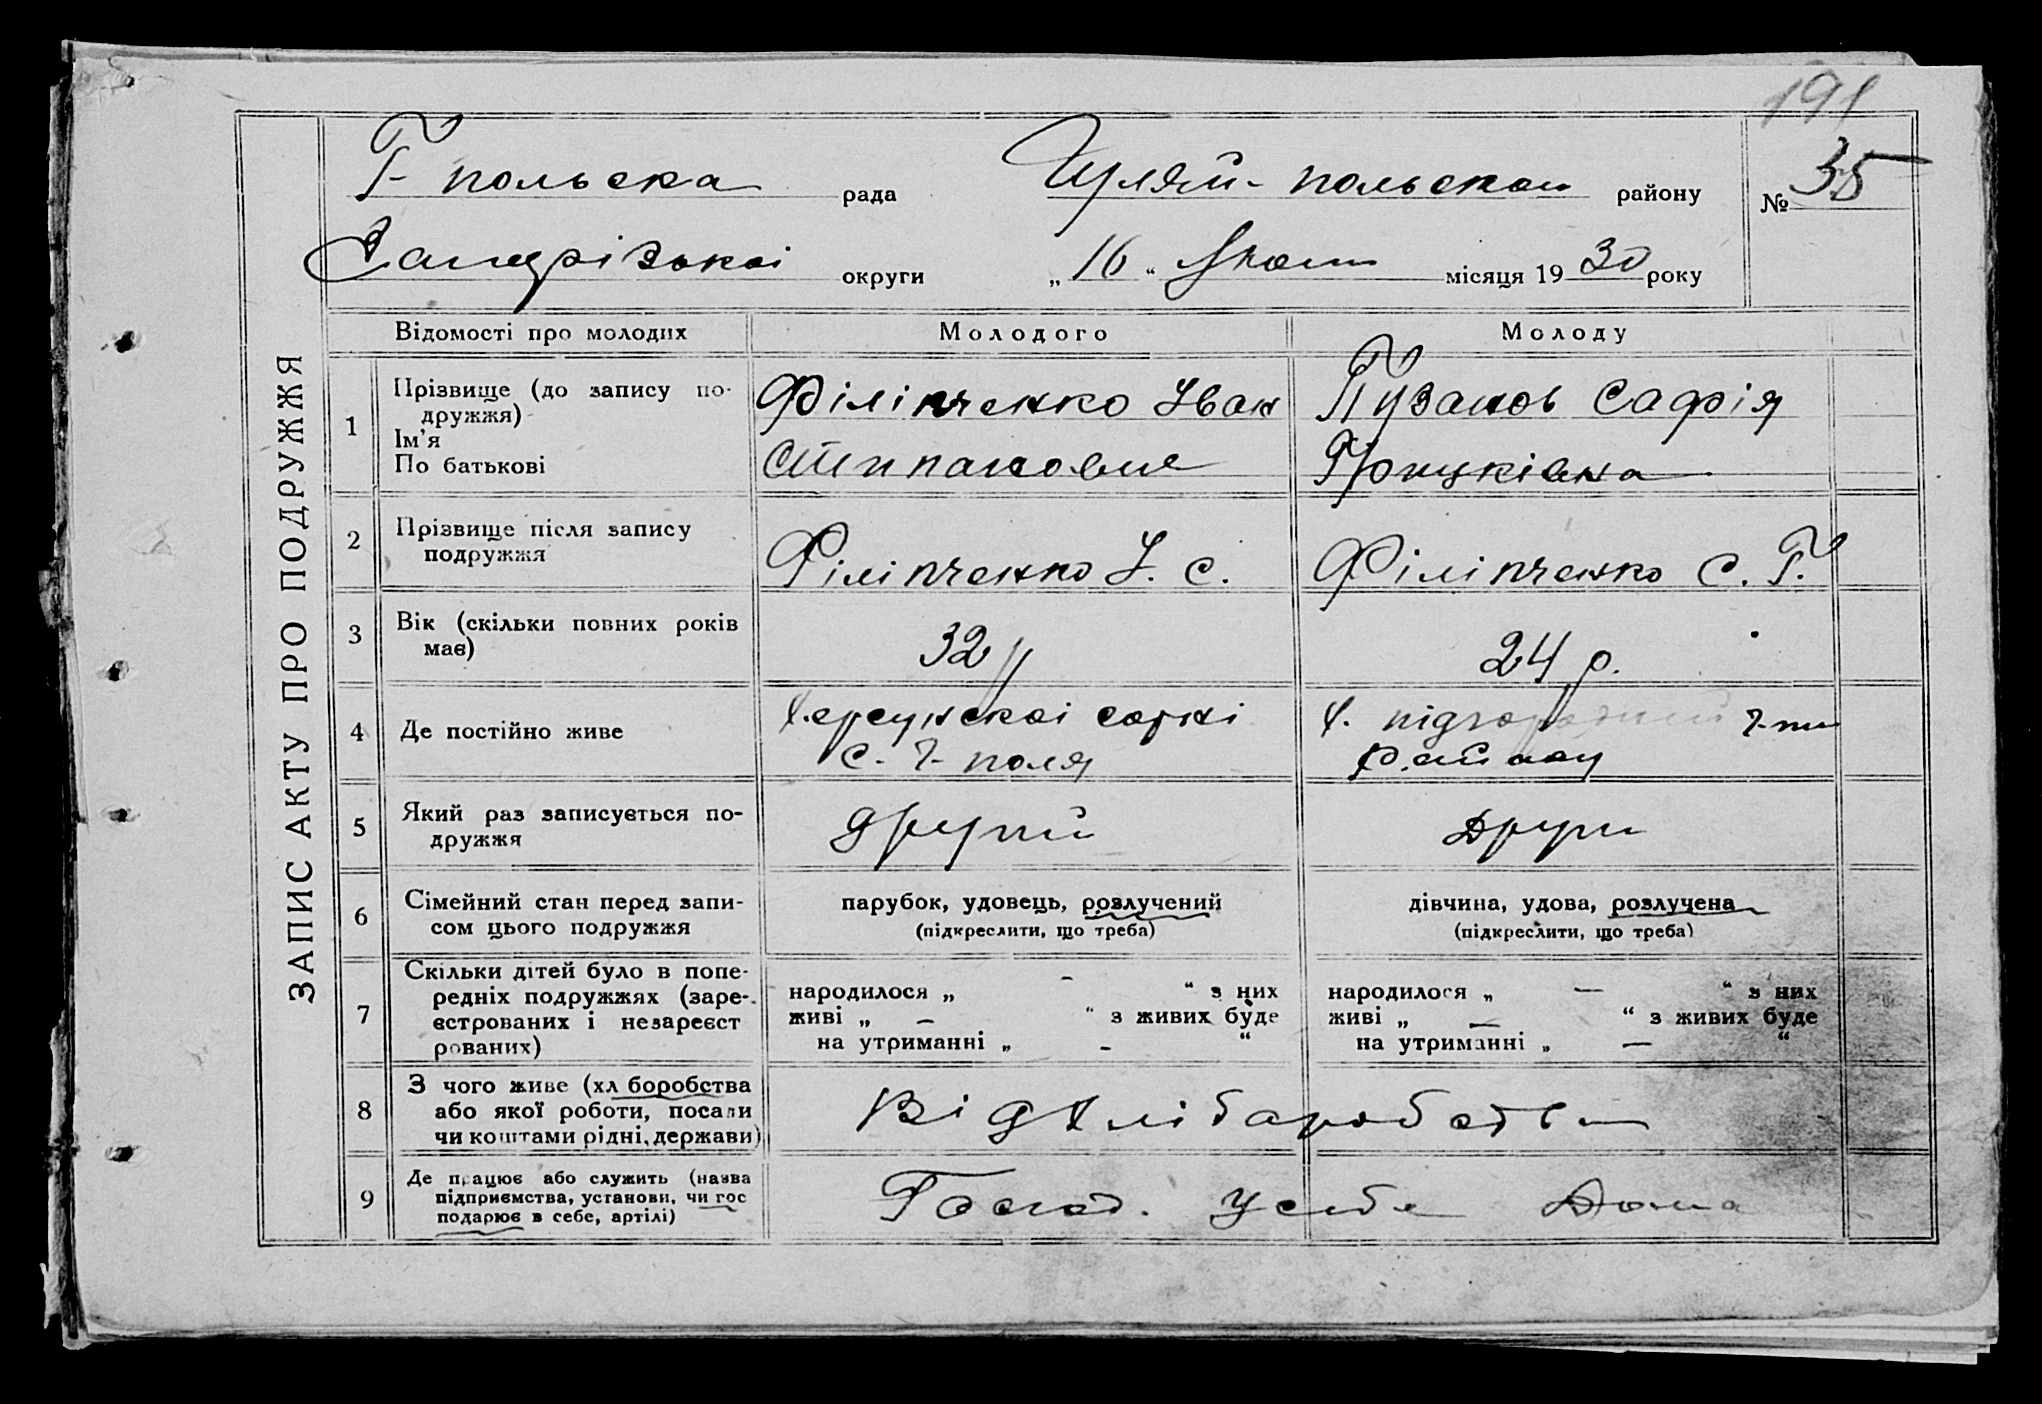 191
Г- польска рада Гуляй-польскои району № 35
Запорізькоі округи „ 16 “ місяця 19 30 року
ЗАПИС АКТУ ПРО ПОДРУЖЖЯ
Відомості про молодих Молодого Молоду
1 Прізвище (до запису по-
дружжя)
Ім'я
По батькові
Філіпченко Іван
Степановие
Пузанов Сафія
2 Прізвище після запису
подружжя
Філіпченко І. С. Філіпченко С. Г.
3 Вік (скільки повних років
має)
32 24 р.
4 Де постійно живе
Херсунскоі сотні
С. Г- поля
х. підгородний Г-пи
району
5 Який раз записується по-
дружжя
другий други
6 Сімейний стан перед запи-
сом цього подружжя
парубок, удовець, розлучений
(підкреслити, що треба)
дівчина, удова, розлучена
(підкреслити, що треба)
7 Скільки дітей було в попе-
редніх подружжях (заре-
єстрованих і незареєст
рованих)
народилося „ - “ з них
живі „ — “ з живих буде
на утриманні „ - “
народилося „ — “ з них
живі „ — “ з живих буде
на утриманні „ — “
8 З чого живе (хл боробства
або якої роботи, посади
чи коштами рідні, держави)
Від хліборобства
9 Де працює або служить (назва
підприємства, установи, чи гос
подарює в себе, артілі)
Господ. у себе Дома